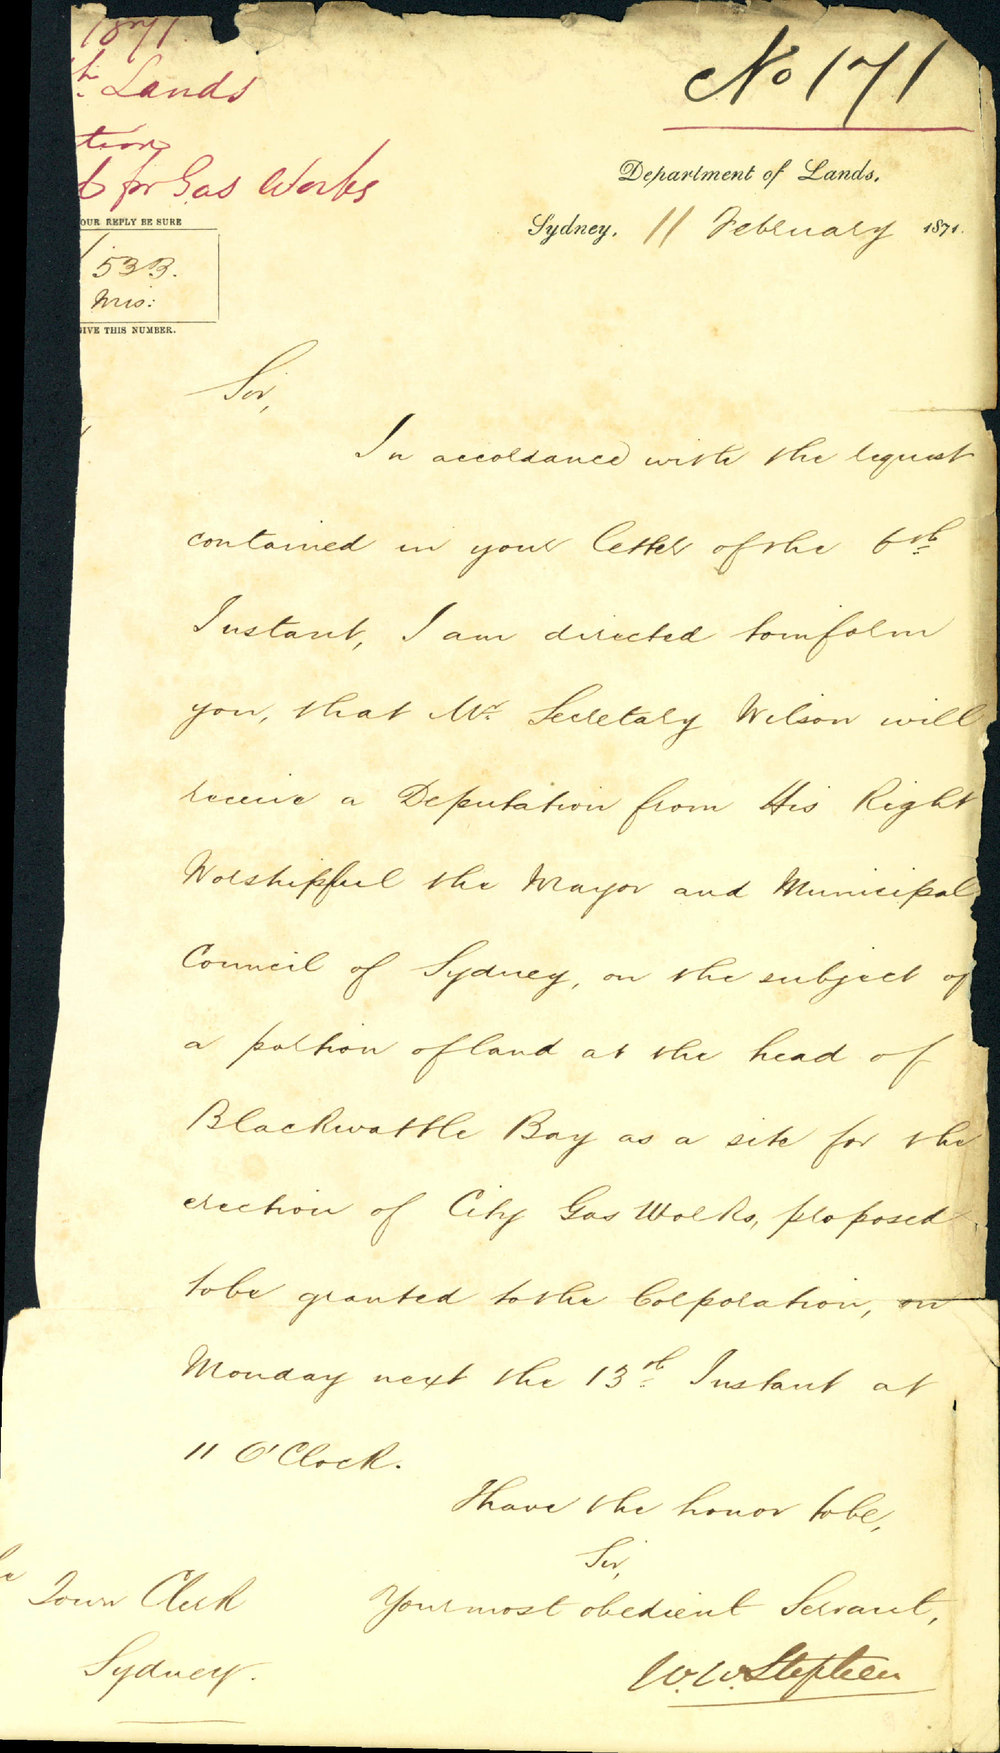 1871.
th. Lands
tion
d for Gas Works
No 171
Department of Lands,
Sydney, 11 February 1871.
OUR REPLY BE SURE
533.
Mis:
GIVE THIS NUMBER.
Sir,
In accordance with the request
contained in your letter of the 6th
Instant, I am directed to inform
you, that Mr. Secretary Wilson will
receive a Deputation from His Right
Worshipful the Mayor and Municipal
Council of Sydney, on the subject of
a portion of land at the head of
Blackwattle Bay as a site for the
erection of City Gas Works, proposed
to be granted to the Corporation, on
Monday next the 13th. Instant at
11 O'Clock.
I have the honor to be,
Sir,
Your most obedient Servant,
W.W. Stephen
Town Clerk
Sydney.